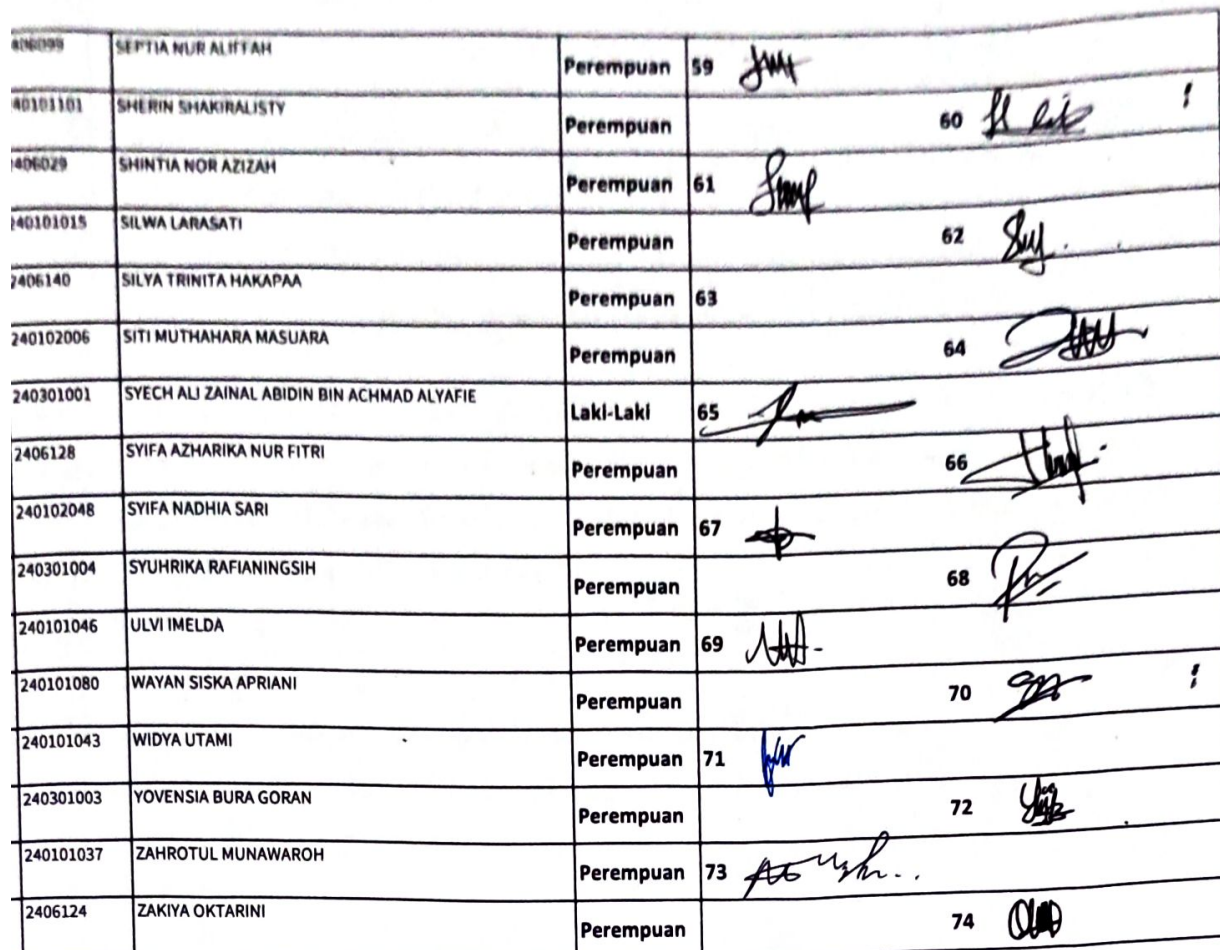 406099 SEPTIA NUR ALIFFAH Perempuan 59
40101101 SHERIN SHAKIRALISTY Perempuan 60
406029 SHINTIA NOR AZIZAH Perempuan 61
240101015 SILWA LARASATI Perempuan 62
2406140 SILYA TRINITA HAKAPAA Perempuan 63
240102006 SITI MUTHAHARA MASUARA Perempuan 64
240301001 SYECH ALI ZAINAL ABIDIN BIN ACHMAD ALYAFIE Laki-Laki 65
2406128 SYIFA AZHARIKA NUR FITRI Perempuan 66
240102048 SYIFA NADHIA SARI Perempuan 67
240301004 SYUHRIKA RAFIANINGSIH Perempuan 68
240101046 ULVI IMELDA Perempuan 69
240101080 WAYAN SISKA APRIANI Perempuan 70
240101043 WIDYA UTAMI Perempuan 71
240301003 YOVENSIA BURA GORAN Perempuan 72
240101037 ZAHROTUL MUNAWAROH Perempuan 73
2406124 ZAKIYA OKTARINI Perempuan 74